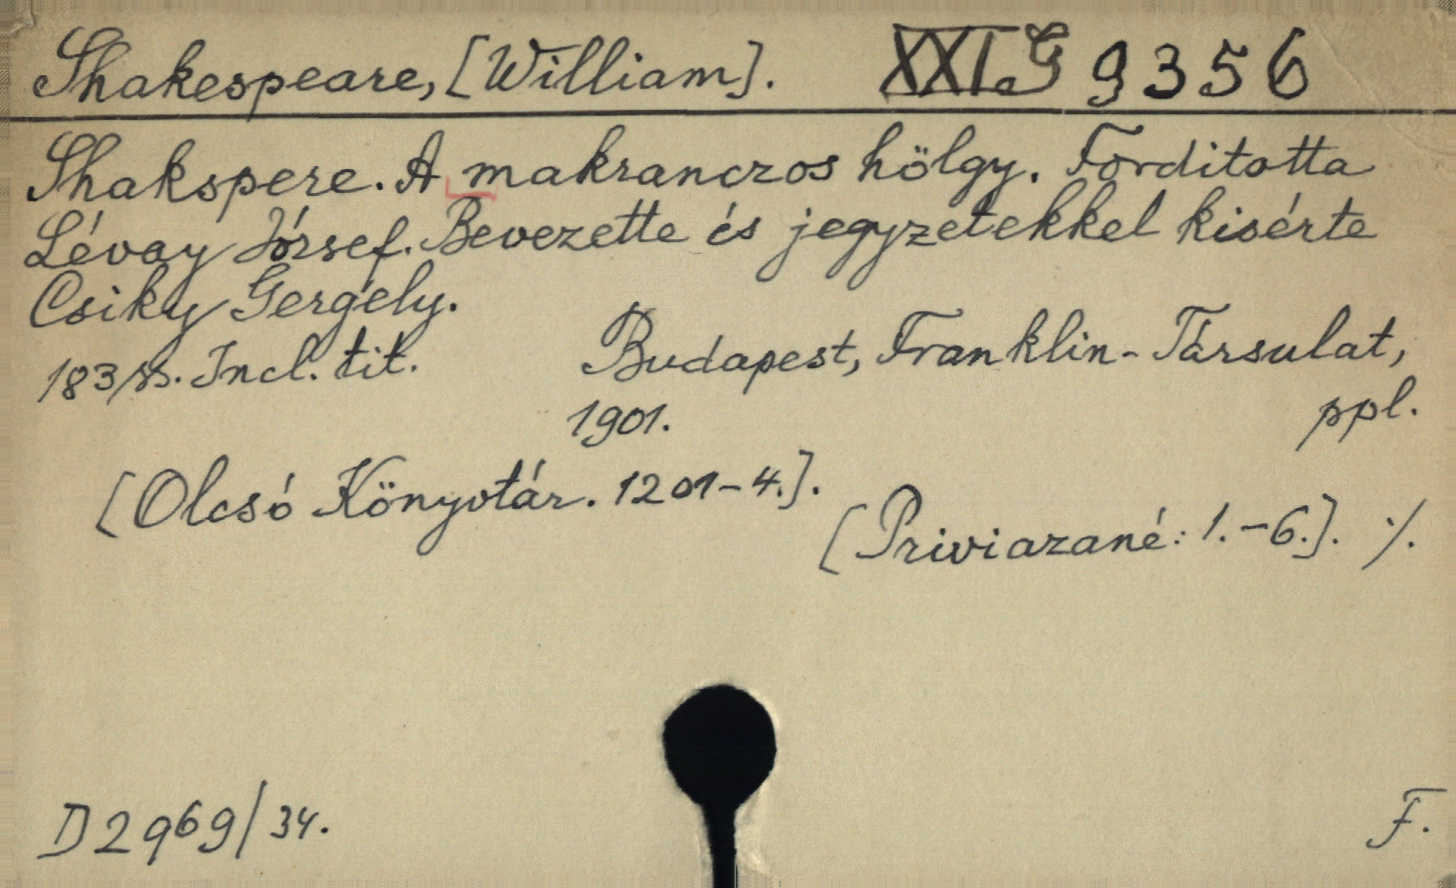 Shakespeare, [William]. XXI.G 9356
Shakspere. A makranczos hölgy. Forditotta
Lévay József. Bevezette és jegyzetekkel kisérte
Csiky Gergely.
183/s. Incl. tit. Budapest, Franklin-Társulat,
1901. ppl.
[Olcsó Könyvtár. 1201-4.].
[Priviazané: 1.-6.]. ·/.
D 2969/34. F.